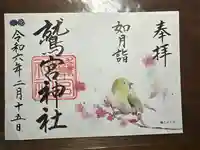 奉拝
如月詣
鷲宮神社
令和六年二月十五日